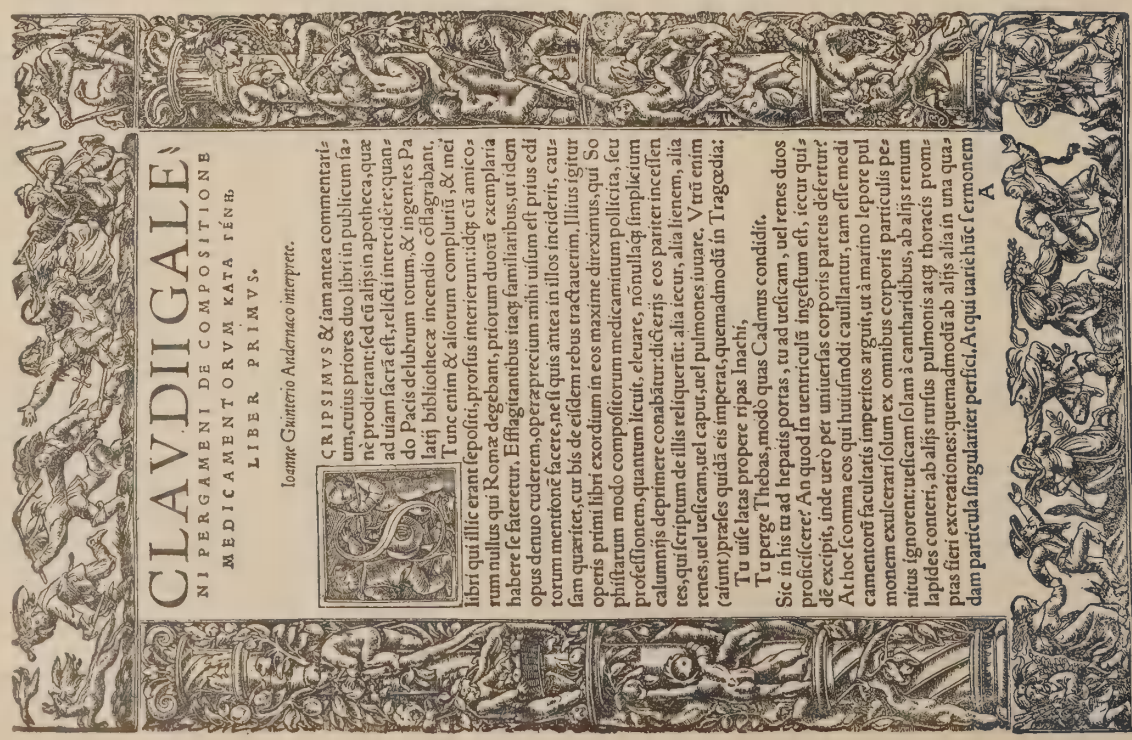 CLAVDI GALE⸗
NI PERGAMENI DE COMPOSITIONE
MEDICAMENTORVM ΚΑΤΑ ΓΕΝΗ,
LIBER PRIMVS.
Ioanne Guinterio Andernaco interprete.
SCRIPSIMVS & iam antea commentari⸗
um, cuius priores duo libri in publicum sa⸗
nè prodierant: sed cū alijs in apotheca, quæ
ad uiam sacrā est, relicti intercidêre: quan⸗
do Pacis delubrum totum, & ingentes Pa
latij bibliothecæ incendio cōflagrabant,
Tunc enim & aliorum compluriū, & mei
libri qui illic erant sepositi, prorsus interierunt: idq́ꝫ cū amico⸗
rum nullus qui Romæ degebant, priorum duorū exemplaria
habere se fateretur. Efflagitantibus itaqꝫ familiaribus, ut idem
opus denuo cuderem, operæprecium mihi uisum est prius edi
torum mentionē facere, ne si quis antea in illos inciderit, cau⸗
sam quæritet, cur bis de eisdem rebus tractauerim. Illius igitur
operis primi libri exordium in eos maxime direximus, qui So
phistarum modo compositorum medicaminum pollicita, seu
professionem, quantum licuit, eleuare, nōnullaqꝫ simplicium
calumnijs deprimere conabātur: dicterijs eos pariter incessen
tes, qui scriptum de illis reliquerūt: alia iecur, alia lienem, alia
renes, uel uesicam, uel caput, uel pulmones iuuare. Vtrū enim
(aiunt) præses quidā eis imperat, quemadmodū in Tragœdia:
Tu uise latas propere ripas Inachi,
Tu perge Thebas, modo quas Cadmus condidit.
Sic in his tu ad hepatis portas, tu ad uesicam, uel renes duos
proficiscere? An quod in uentriculū ingestum est, iecur quis⸗
dē excipit, inde uerò per uniuersas corporis partes defertur?
At hoc scomma eos qui huiusmodi cauillantur, tam esse medi
camentorū facultatis imperitos arguit, ut à marino lepore pul
monem exulcerari solum ex omnibus corporis particulis pe⸗
nitus ignorent; uesicam solam à cantharidibus, ab alijs renum
lapides conteri, ab alijs rursus pulmonis atqꝫ thoracis prom⸗
ptas fieri excreationes: quemadmodū ab alijs alia in una qua⸗
dam particula singulariter perfici. Atqui uarie hūc sermonem
A